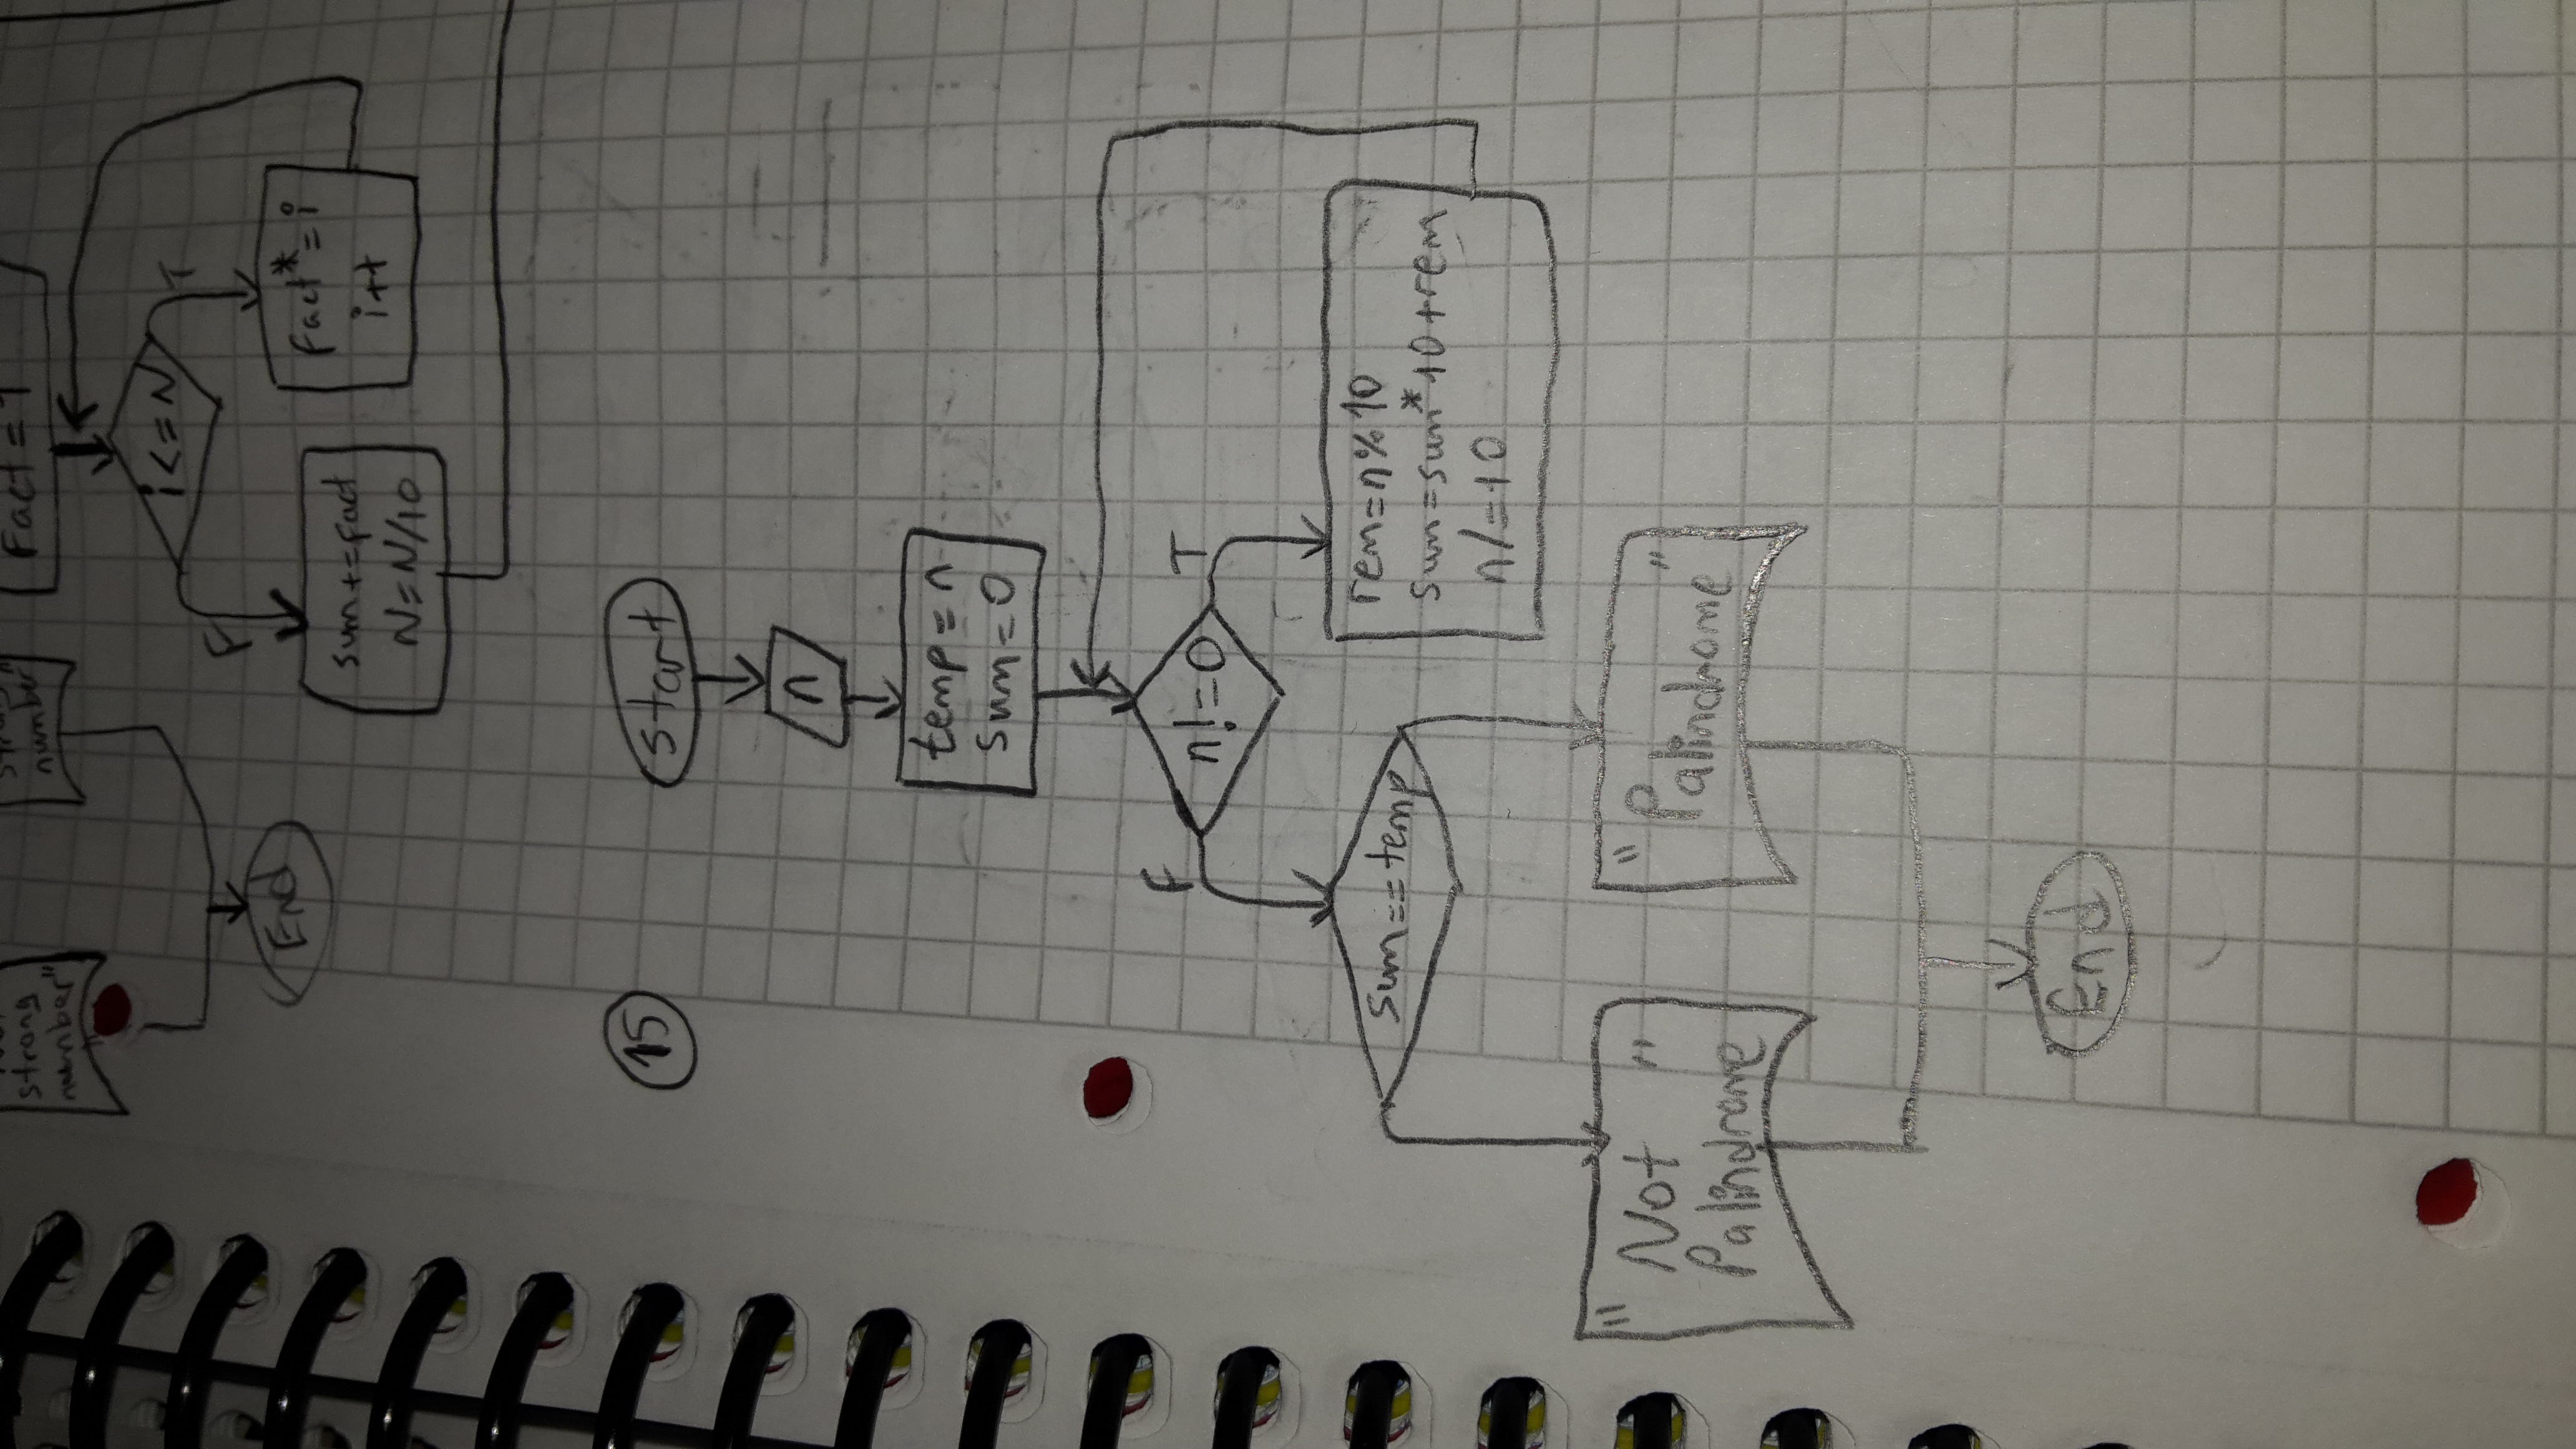 strong
number"
number
Fact = 1
i<=N
T
F
End
Fact*=i
i++
sum+=fact
N=N/10
15
start
n
temp=n
sum=0
n!=0
F
T
sum==temp
rem=n%10
sum=sum*10+rem
n/=10
" Not "
Palindrome
" Palindrome "
End